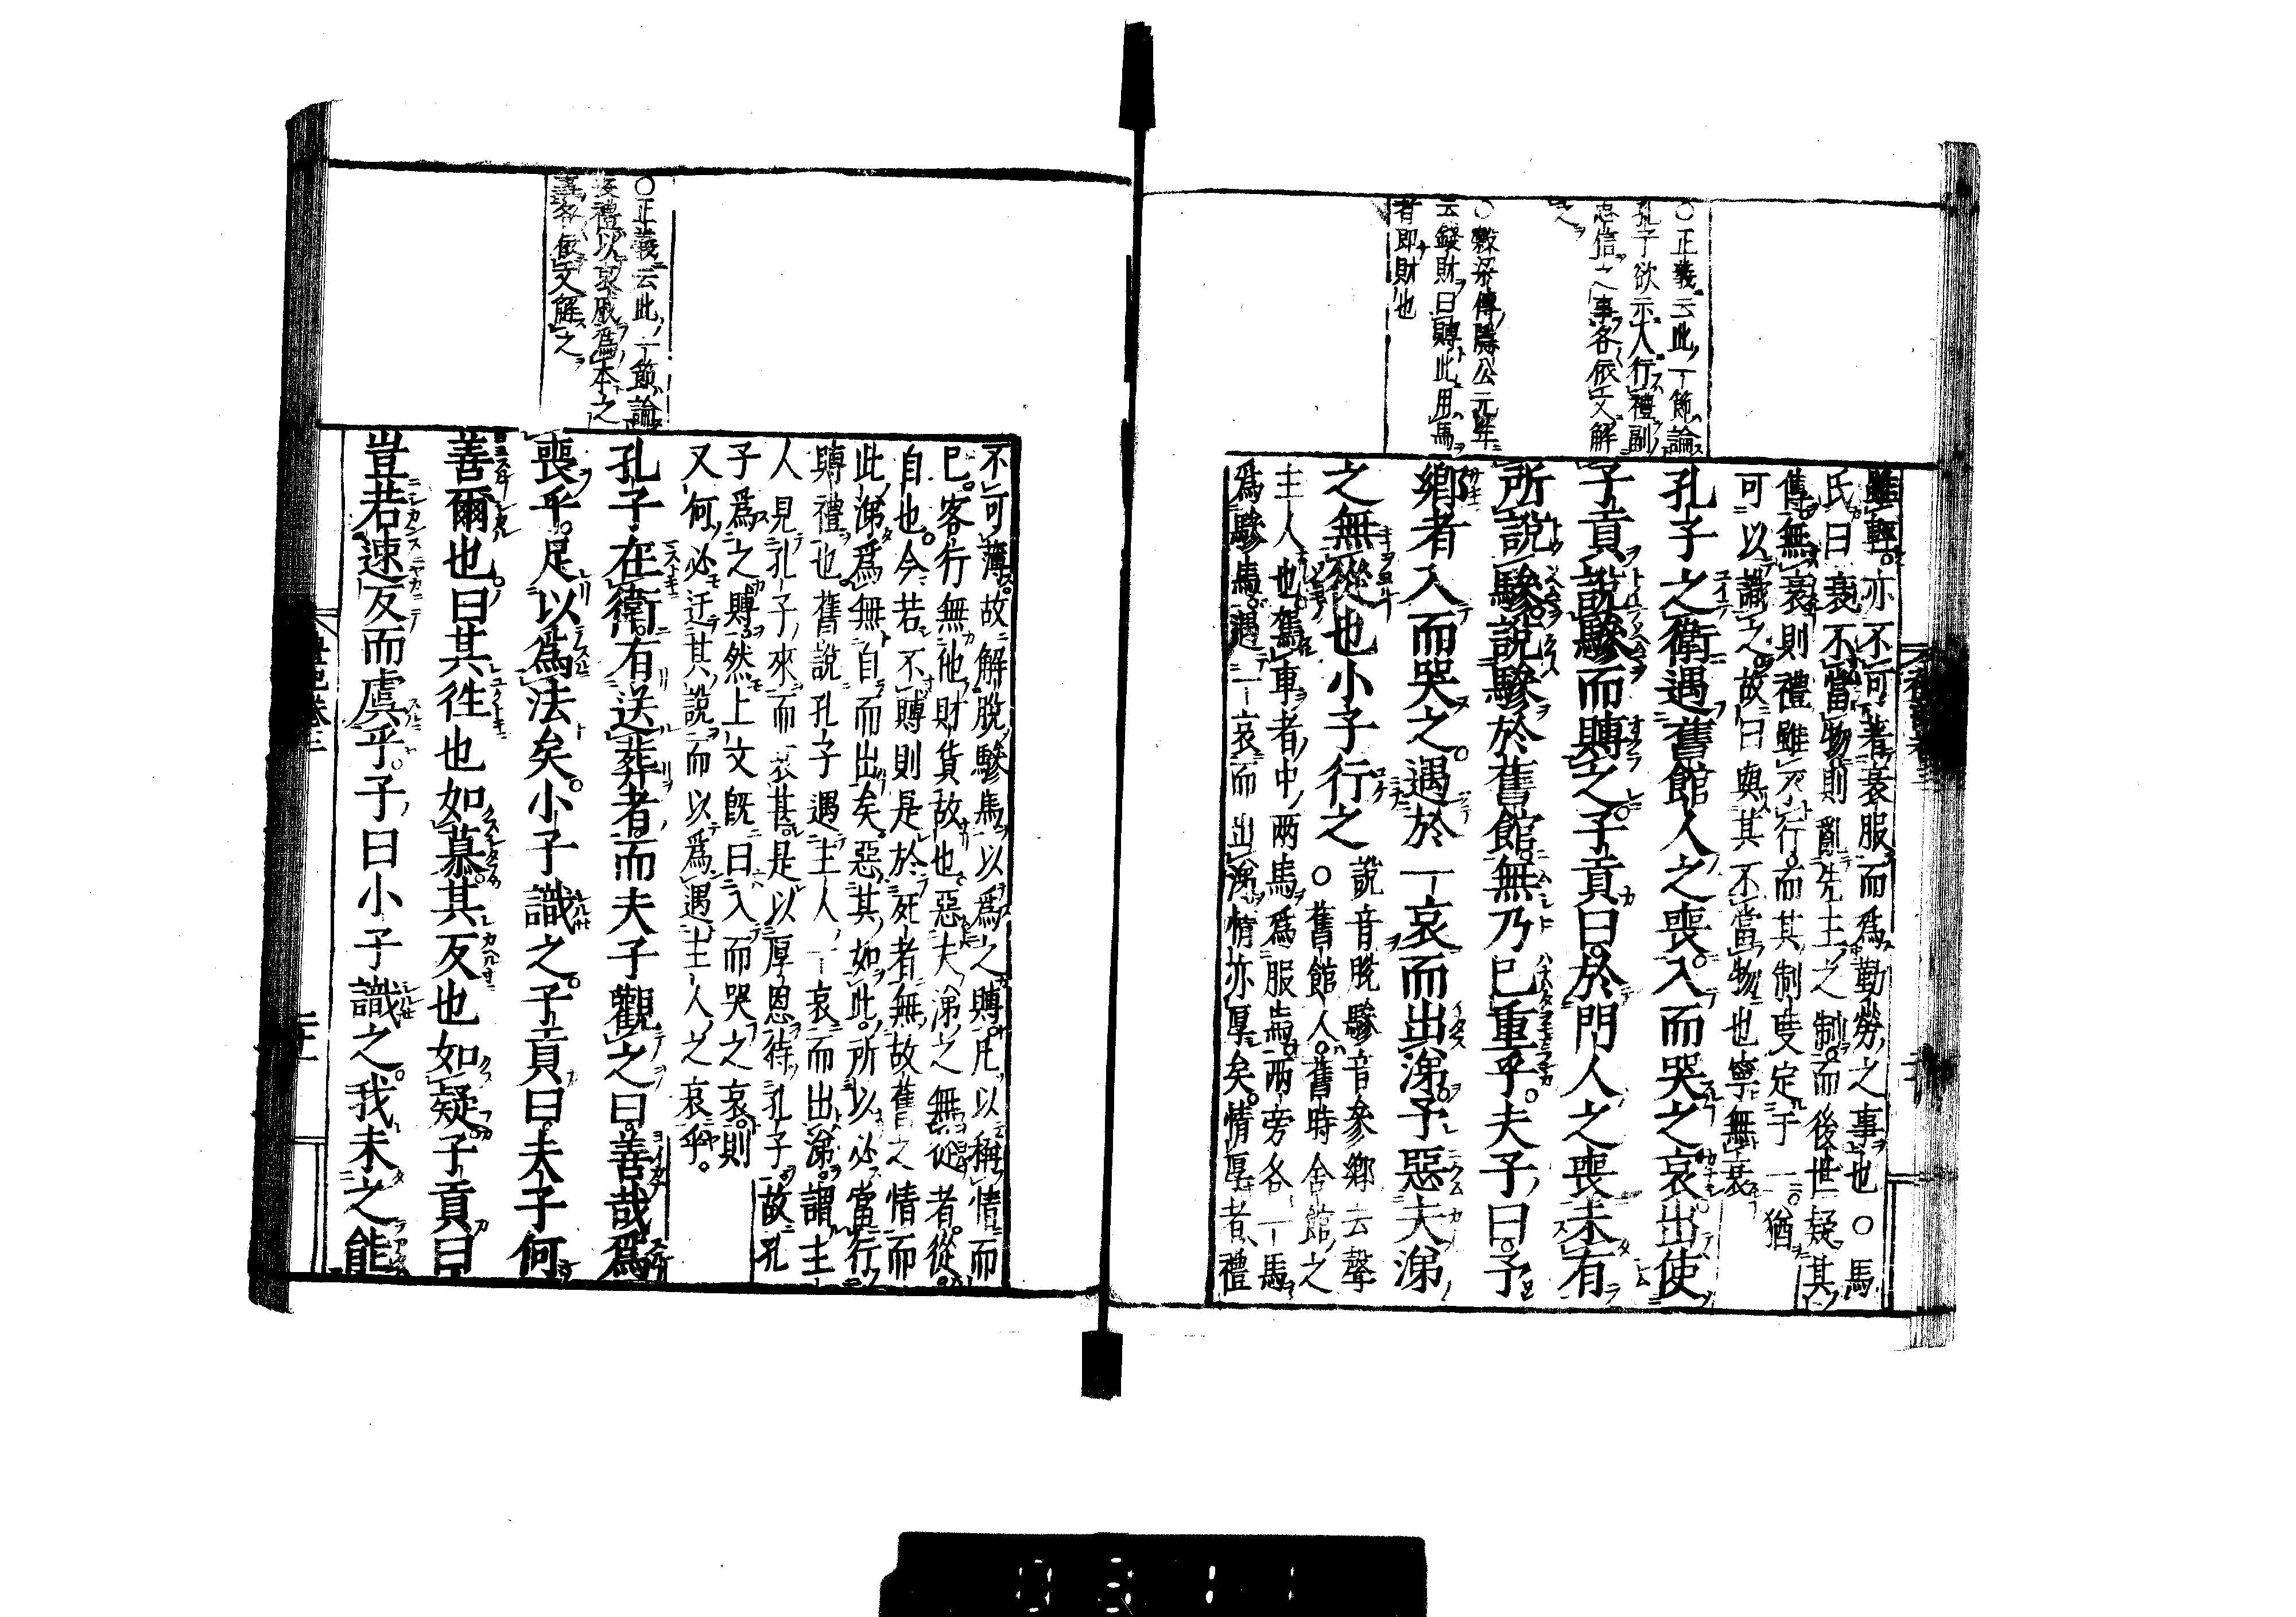 ○正義云此一節論
孔子欲示人行禮副
忠信之事各依文解
之
○穀梁傳隱公元年
云錢財曰賻此用馬
者即財也
雖輕亦不可著衰服而爲勤勞之事也○馬
氏曰衰不當物則亂先王之制而後世疑其
傳無衰則禮雖不行而其制度定于一猶
可以識之故曰與其不當物也寧無衰
孔子之衛遇舊館人之喪入而哭之哀出使
子貢說驂而賻之子貢曰於門人之喪未有
所說驂說驂於舊館無乃已重乎夫子曰予
鄉者入而哭之遇於一哀而出涕予惡夫涕
之無從也小子行之
說音脫驂音參鄉去聲
○舊館人舊時舍館之
主人也駕車者中兩馬爲服馬兩旁各一馬
爲驂馬遇一哀而出涕情亦厚矣情厚者禮
○正義云此一節論
喪禮以哀戚爲本之
事各依文解之
不可薄故解脫驂馬以爲之賻凡以稱情而
已客行無他財貨故也惡夫涕之無從者從
自也今若不賻則是於死者無故舊之情而
此涕爲無自而出矣惡其如此所以必當行
賻禮也舊說孔子遇主人一哀而出涕謂主
人見孔子來而哀甚是以厚恩待孔子故孔
子爲之賻然上文既曰入而哭之哀則
又何必迂其說而以爲遇主人之哀乎
孔子在衛有送葬者而夫子觀之曰善哉爲
喪乎足以爲法矣小子識之子貢曰夫子何
善爾也曰其往也如慕其反也如疑子貢曰
豈若速反而虞乎子曰小子識之我未之能